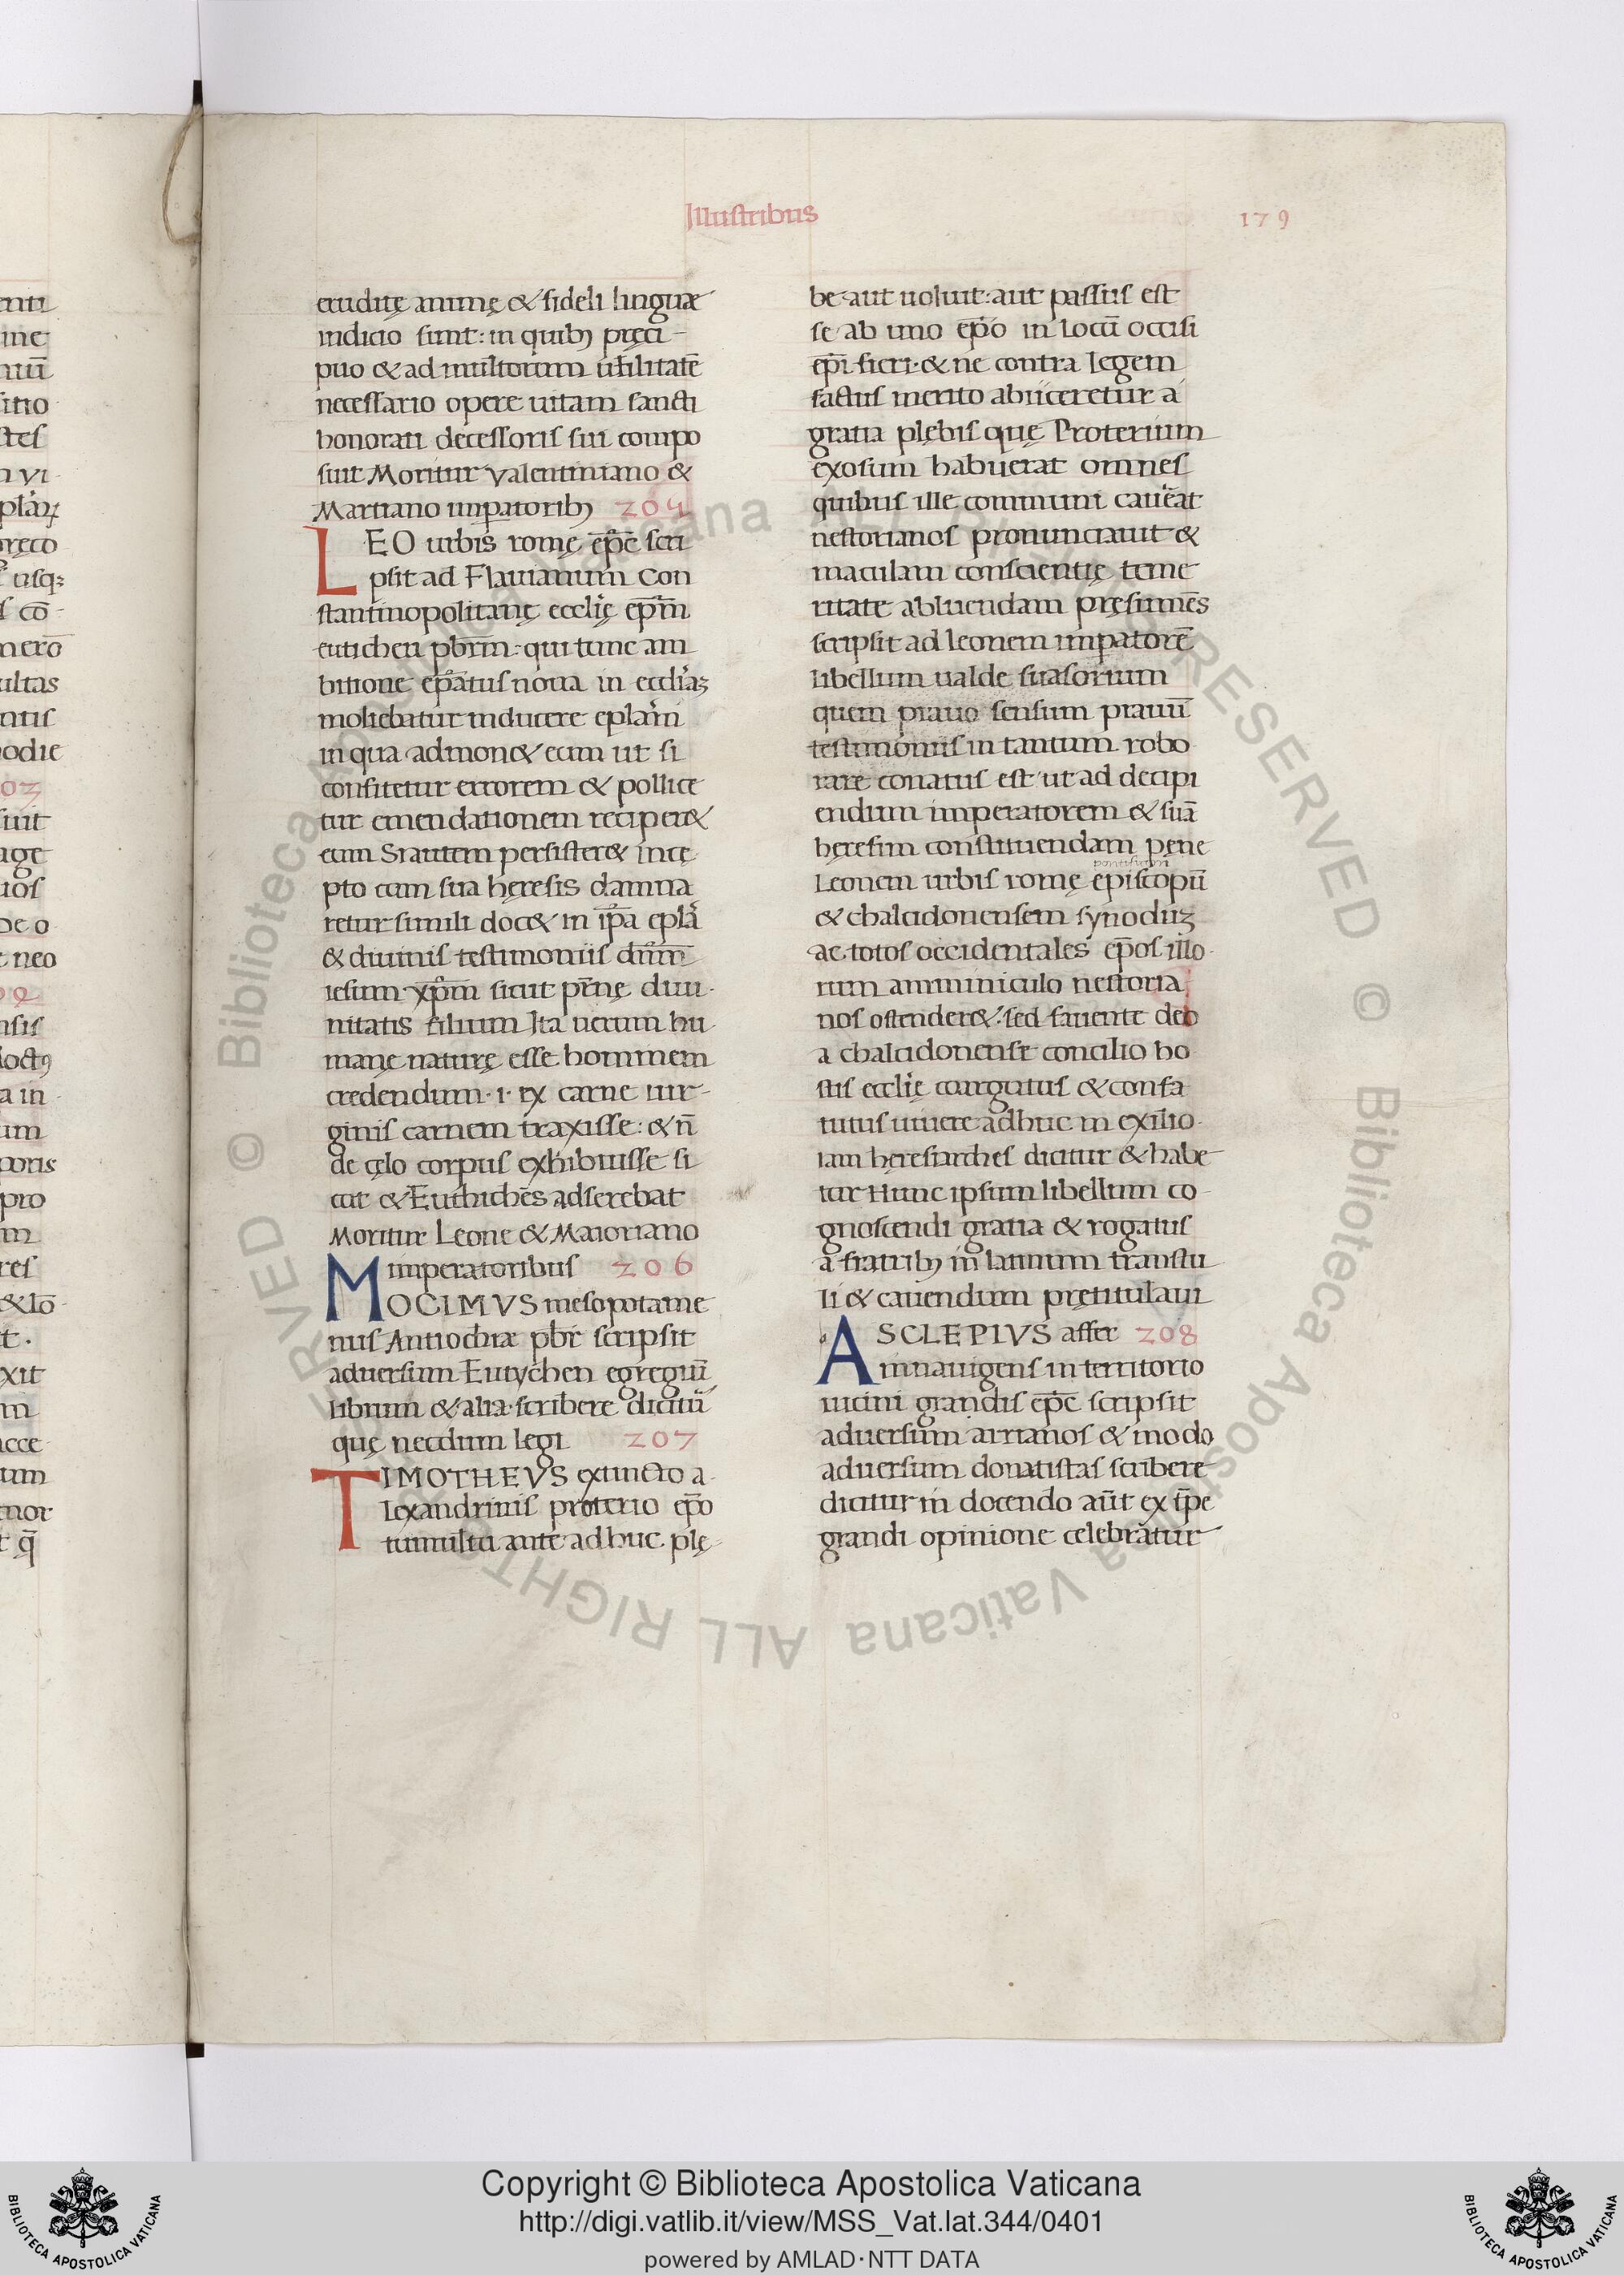 Illustribus
179
eruditę animę & fideli linguæ
indicio sunt: in quibꝫ pręci-
puo & ad multorum utilitatē
necessario opere uitam sancti
honorati decessoris sui compo
suit Moritur valentiniano &
Martiano impatoribꝫ 204
LEO urbis romę ep̄c scri
psit ad Flauianum Con
stantinopolitanę ecclię ep̄m
eutichen pbrm: qui tunc am
bitione ep̄atus noua in eccliaꝫ
moliebatur inducere eplam
in qua admon& eum ut si
confitetur errorem & pollice
tur emendationem reciper&
eum Si autem persister& incę
pto cum sua hęresis damna
retur simili doc& in ip̄a epla
& diuinis testimoniis dn̄m
iesum xp̄m sicut p̄rnę diui-
nitatis filium Ita uerum hu-
manę naturę esse hominem
credendum · i · ex carne uir-
ginis carnem traxisse: & n̄
de cęlo corpus exhibuisse si
cut & Euthiches adserebat
Moritur Leone & Maioriano
imperatoribus 206
MOCIMVS mesopotame
nus Antiochiæ pbr̄ scripsit
aduersum Eutychen egregiū
librum & alia scribere dicitur
quę necdum legi 207
TIMOTHEVS extincto a-
lexandrinis proterio ep̄o
tumultu ante adhuc plę-
be aut uoluit: aut passus est
se ab uno ep̄o in locū occisi
ep̄i fieri · & ne contra legem
factus merito abiiceretur a
gratia plębis quę Proterium
exosum habuerat omnes
quibus ille communi cauerat
nestorianos pronunciauit &
maculam conscientię teme
ritate abluendam pręsumēs
scripsit ad leonem impatorē
libellum ualde suasorium
quem prauo sensum prauū
testimoniis in tantum robo
rare conatus est ut ad decipi
endum imperatorem & suā
hęresim constituendam pęne
pontificem
Leonem urbis romę episcopū
& chalcidonensem synodūꝫ
ac totos occidentales ep̄os illo-
rum amminiculo nestoria
nos ostender& · sed fauente deo
a chalcidonense concilio ho
stis ecclię coargutus & confu
tatus uiuere adhuc in exilio
iam hęresiarches dicitur & habe
tur Hunc ipsum libellum co-
gnoscendi gratia & rogatus
a fratribꝫ in latinum transtu
li & cauendum prętitulaui
ASCLEPIVS affer 208
innauigens in territorio
uicini grandis ep̄c scripsit
aduersum arrianos & modo
aduersum donatistas scribere
dicitur in docendo aūt ex tp̄e
grandi opinione celebratur
Copyright © Biblioteca Apostolica Vaticana
http://digi.vatlib.it/view/MSS_Vat.lat.344/0401
powered by AMLAD·NTT DATA